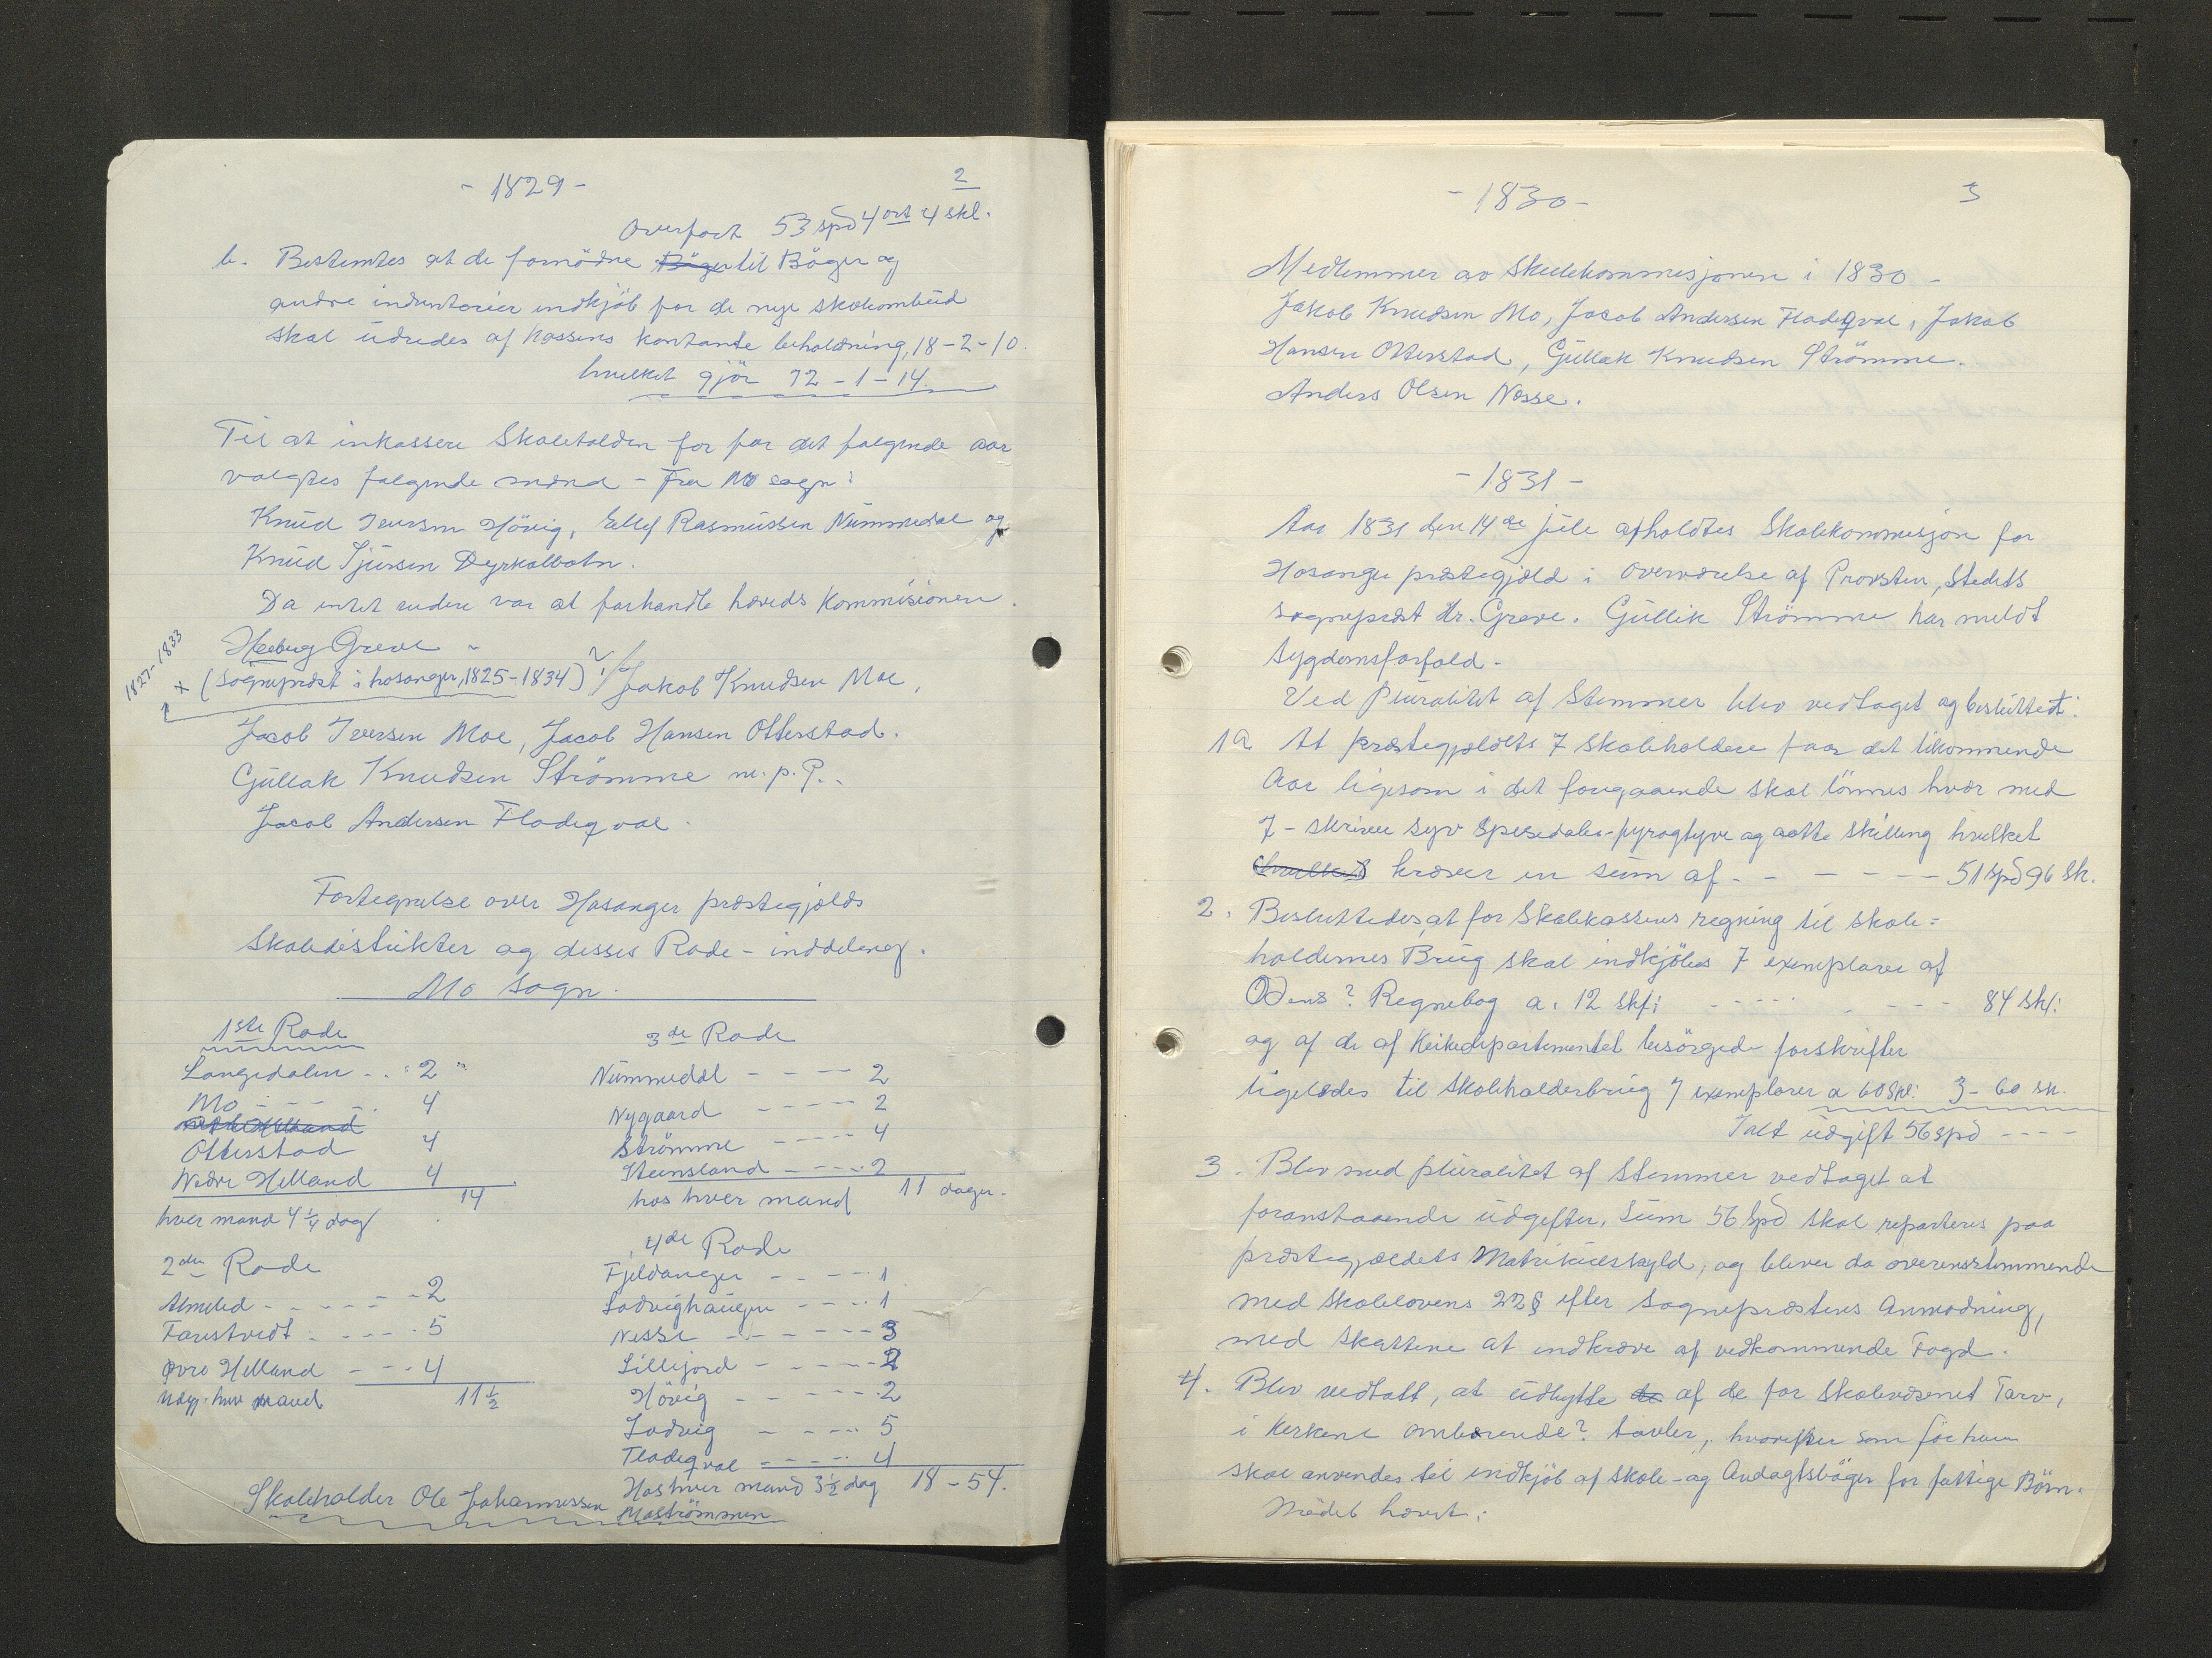 - 1829 -
2
Overført 53 spd 4 ort 4 skl.
b. Bestemtes at de fornödne Böger til Böger og
andre induntarier indkjöb for de nye skoleombud
skal udredes af Kassens kontante beholdning, 18-2-10.
hvilket gjör 72-1-14.
Til at inkassere Skoletolden for for det følgende aar
valgtes følgende mænd - Fra Mo sogn:
Knud Iversen Hövig, Ellef Rasmussen Nummedal og
Knud Sjursen Dyrkolbotn.
Da intet videre var at forhandle hæveds Kommisionen.
Herberg Greve
1827-1833
x (sogneprest i hosanger, 1825-1834)?! Jakob Knudsen Moe,
Jacob Iversen Moe, Jacob Hansen Otterstad.
Gullak Knudsen Strömme m.p.P..
Jacob Andersen Fladeqval.
Fortegnelse over Hosanger prestegjælds
Skoledistrikter og disses Rode-inddeleng.
Mo Sogn.
1ste Rode
Langedalen - - 2 "
Mo - - - - 4
Nedre Helland
Otterstad 4
Nedre Helland 4
14
hver mand 4 1/4 dag
2den Rode
Almelid - - - - - 2
Farestvedt - - - - 5
Øvre Helland - - - 4
hver mand 11 1/2
3de Rode
Nummedal - - - - 2
Nygaard - - - - - 2
Strömme - - - - 4
Steinsland - - - - 2
hos hver mand 11 dager.
4de Rode
Fjeldanger - - - - 1
Ladvighaugen - - - - 1
Nesse - - - - - - 3
Lillejord - - - - - 2
Hövig - - - - - 2
Ladvig - - - - - 5
Fladeqval - - - - - 4
Hos hver mand 3 1/2 dag 18 - 54.
Skoleholder Ole Johannessen Moströmmen
- 1830 -
3
Medlemmer av skulekommisjonen i 1830 -
Jakob Knudsen Mo, Jacob Andersen Fladeqval, Jakob
Hansen Otterstad, Gullak Knudsen Strömme.
Anders Olsen Nesse.
- 1831 -
Aar 1831 den 14de juli afholdtes Skolekommisjon for
Hosanger prestegjæld i overværelse af Provsten, Stedets
sogneprest Hr. Greve. Gullik Strömme har meldt
sygdomsforfald -
Ved Pluralitet af Stemmer blev vedtaget og besluttedt:
1a At prestegjældets 7 Skoleholdere for det tilkommende
Aar ligesom i det foregaaende skal lönnes hver med
7 - skriver syv spesidaler-fyrogtyve og aatte skilling hvilket
hvilket kræver en sum af - - - - - - 51 spd 96 Sk.
2. Besluttedes, at for Skolekassens regning til skole=
holdernes Brug skal indkjöbes 7 exemplarer af
Odens? Regnebog a. 12 sk/: - - - - - - - - 84 sk/:
og af de af Keikedepartementet besörgede forskrifter
ligeledes til Skoleholderbrug 7 exemplarer a 60 Skl: 3- 60 sk.
Ialt udgift 56 spd - - - -
3. Blev med pluralitet af Stemmer vedtaget at
foranstaaende udgifter, Sum 56 Spd skal reparteres paa
prestegjældets Matrikulskyld, og bliver da overensstemmende
med skolelovens 22 § efter Sogneprestens Anmodning,
med skattene at indkræve af vedkommende Fogd.
4. Blev vedtatt, at udbytte de af de for Skolevæsenet Tarv,
i Kerkene ombærende? tavler, hvorefter som för
skal anvendes til indkjöb af skole- og Andagtsböger for fattige Börn.
Mödet hævet.